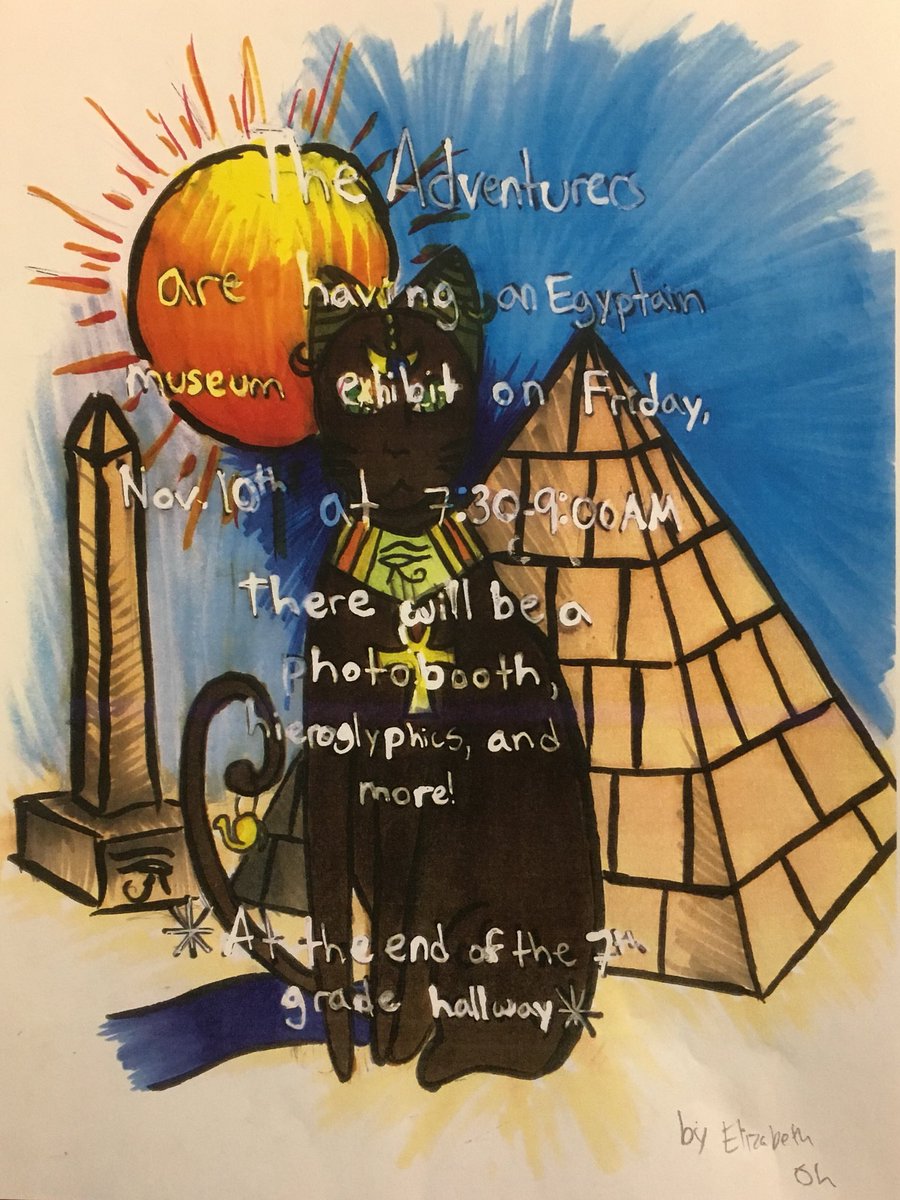 The Adventurers
are having an Egyptain
museum exhibit on Friday,
Nov. 10th at 7:30-9:00AM
There will be a
photobooth,
hieroglyphics, and
more!
*At the end of the 7th
grade hallway*
by Elizabeth
Oh